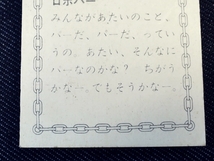 みんながあたいのこと、
バーだ、バーだ、ってい
うの。あたい、そんなに
バーなのかな？　ちがう
かなー。でもそうかなー。